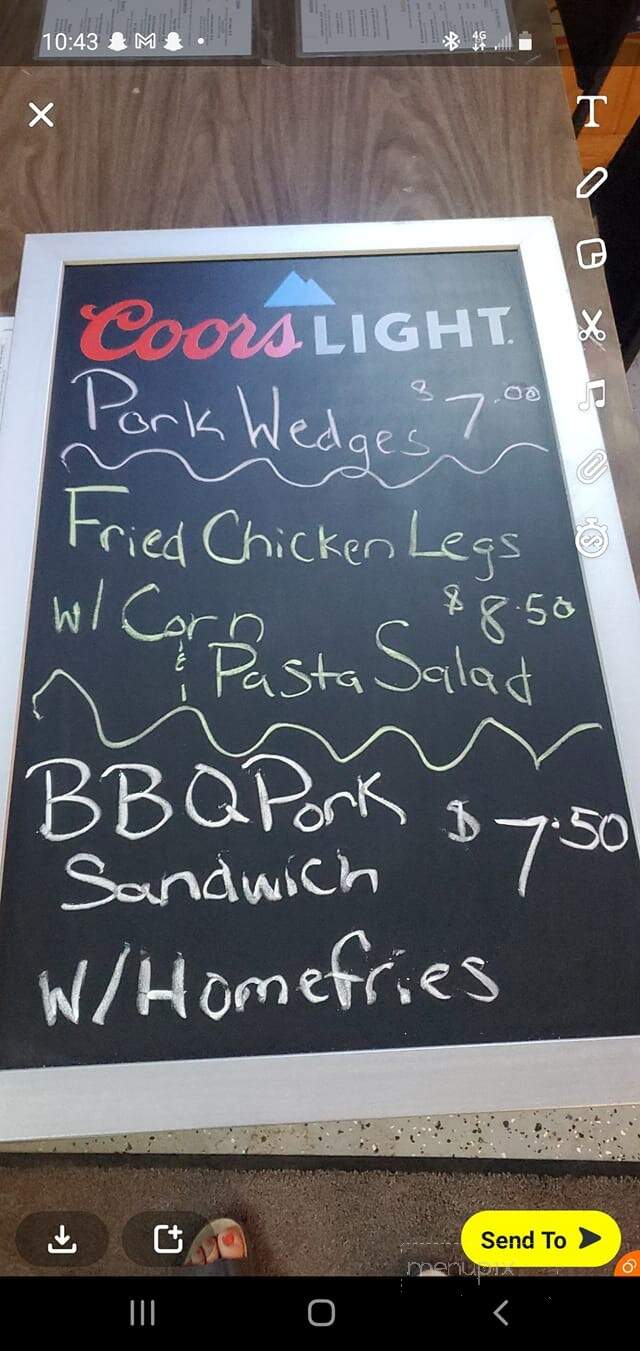 10:43
4G
T
Coors LIGHT.
Pork Wedges $7.00
Fried Chicken Legs
w/ Corn $8.50
& Pasta Salad
BBQ Pork $7.50
Sandwich
W/Homefries
Send To
menupix